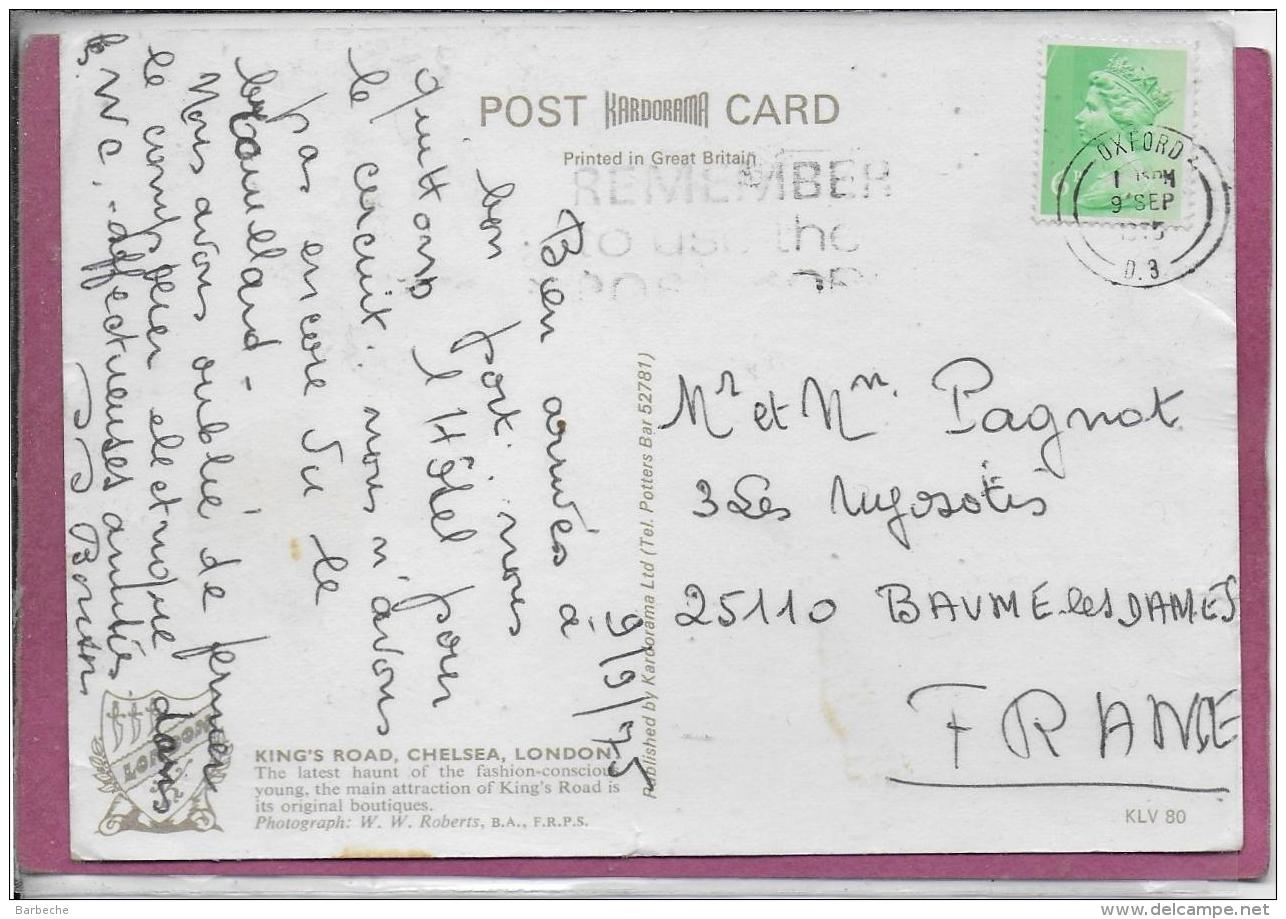 POST KARDORAMA CARD
Printed in Great Britain
REMEMBER
to use the
OXFORD
9 SEP
D.3
9/9/75
Bien arrivés à
bon port. nous
quittons l'Hôtel pour
le circuit. nous n'avons
pas encore vu le
brouillard -
Nous avons oublié de fermer
le compteur electrique dans
les WC. - affectueuses amitiés.
Published by Kardorama Ltd (Tel. Potters Bar 52781)
Mr et Mm. Pagnot
3 Les Myosotis
25110 BAUME-les DAMES
FRANCE
LONDON
KING'S ROAD, CHELSEA, LONDON
The latest haunt of the fashion-conscious
young, the main attraction of King's Road is
its original boutiques.
Photograph: W. W. Roberts, B.A., F.R.P.S.
KLV 80
Barbeche